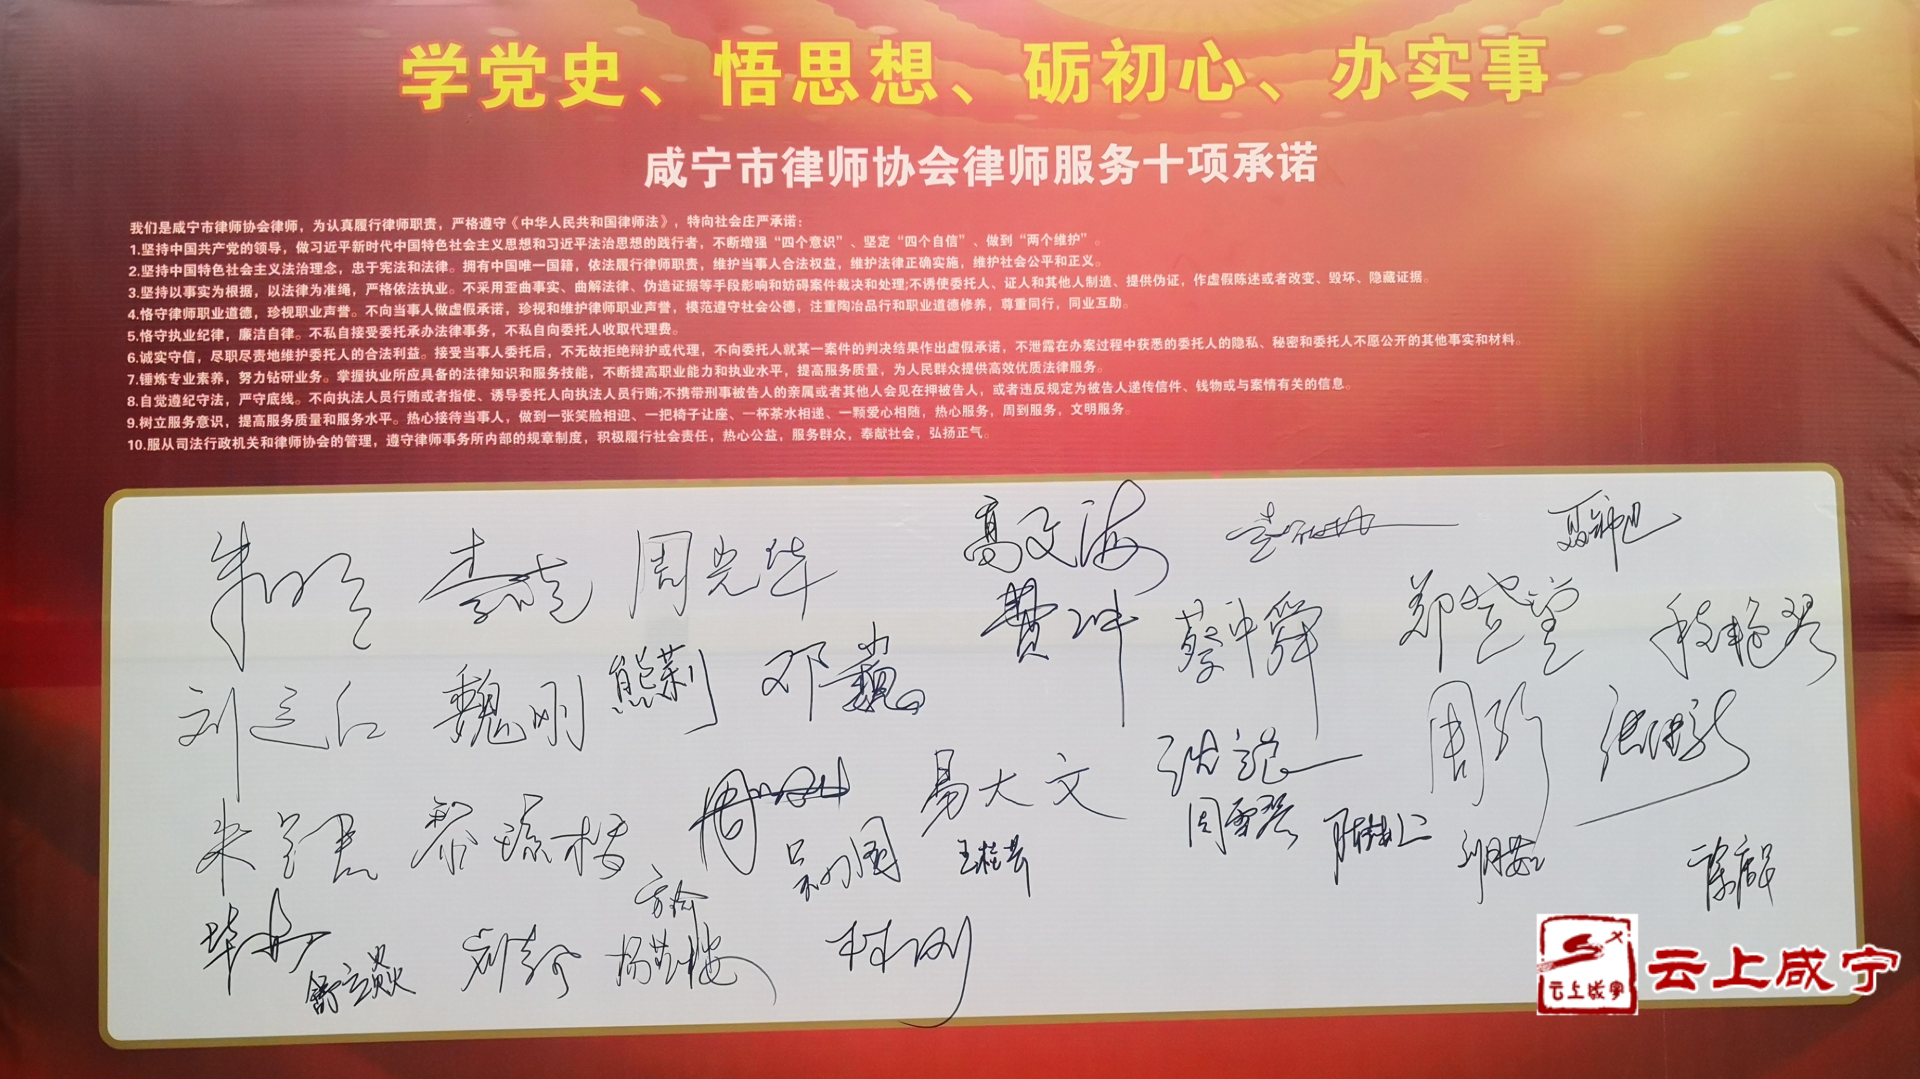 学党史、悟思想、砺初心、办实事
咸宁市律师协会律师服务十项承诺
我们是咸宁市律师协会律师，为认真履行律师职责，严格遵守《中华人民共和国律师法》，特向社会庄严承诺：
1.坚持中国共产党的领导，做习近平新时代中国特色社会主义思想和习近平法治思想的践行者，不断增强“四个意识”、坚定“四个自信”、做到“两个维护”。
2.坚持中国特色社会主义法治理念，忠于宪法和法律。拥有中国唯一国籍，依法履行律师职责，维护当事人合法权益，维护法律正确实施，维护社会公平和正义。
3.坚持以事实为根据，以法律为准绳，严格依法执业。不采用歪曲事实、曲解法律、伪造证据等手段影响和妨碍案件裁决和处理;不诱使委托人、证人和其他人制造、提供伪证，作虚假陈述或者改变、毁坏、隐藏证据。
4.恪守律师职业道德，珍视职业声誉。不向当事人做虚假承诺，珍视和维护律师职业声誉，模范遵守社会公德，注重陶冶品行和职业道德修养，尊重同行，同业互助。
5.恪守执业纪律，廉洁自律。不私自接受委托承办法律事务，不私自向委托人收取代理费。
6.诚实守信，尽职尽责地维护委托人的合法利益。接受当事人委托后，不无故拒绝辩护或代理，不向委托人就某一案件的判决结果作出虚假承诺，不泄露在办案过程中获悉的委托人的隐私、秘密和委托人不愿公开的其他事实和材料。
7.锤炼专业素养，努力钻研业务。掌握执业所应具备的法律知识和服务技能，不断提高职业能力和执业水平，提高服务质量，为人民群众提供高效优质法律服务。
8.自觉遵纪守法，严守底线。不向执法人员行贿或者指使、诱导委托人向执法人员行贿;不携带刑事被告人的亲属或者其他人会见在押被告人，或者违反规定为被告人递传信件、钱物或与案情有关的信息。
9.树立服务意识，提高服务质量和服务水平。热心接待当事人，做到一张笑脸相迎、一把椅子让座、一杯茶水相递、一颗爱心相随，热心服务，周到服务，文明服务。
10.服从司法行政机关和律师协会的管理，遵守律师事务所内部的规章制度，积极履行社会责任，热心公益，服务群众，奉献社会，弘扬正气。
朱明 周光华 高文海
费坤 蔡中舜 郑登堂
魏刚 熊莉 邓巍
易大文
王桂芸
方玲
舒立焱 柯刚
云上咸宁
云上咸宁